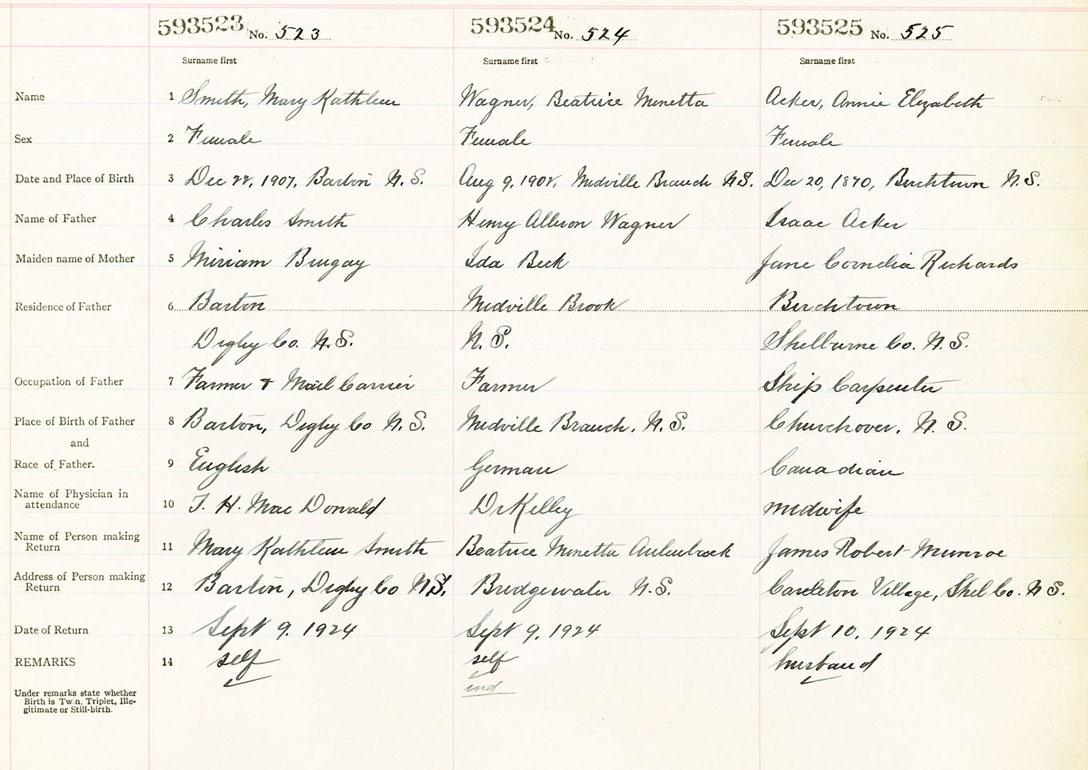 593523 No. 523 593524 No. 524 593525 No. 525
Surname first Surname first Surname first
Name 1 Smith, Mary Kathleen Wagner, Beatrice Minetta Acker, Annie Elizabeth
Sex 2 Female Female Female
Date and Place of Birth 3 Dec 22, 1907, Barton N.S. Aug 9, 1901, Midville Branch N.S. Dec 20, 1870, Birchtown N.S.
Name of Father 4 Charles Smith Henry Allison Wagner Isaac Acker
Maiden name of Mother 5 Miriam Ida Beck Jane Cornelia Richards
Residence of Father 6 Barton Midville Brook Birchtown
Digby Co. N.S. N.S. Shelburne Co. N.S.
Occupation of Father 7 Farmer & Mail Carrier Farmer Ship Carpenter
Place of Birth of Father 8 Barton, Digby Co N.S. Midville Branch. N.S. Churchover. N.S.
and
Race of Father. 9 English German Canadian
Name of Physician in attendance 10 J. H. Mac Donald Dr Kelley midwife
Name of Person making Return 11 Mary Kathleen Smith Beatrice Minetta Aulenback James Robert Munroe
Address of Person making Return 12 Barton, Digby Co N.S. Bridgewater N.S. Carleton Village, Shel Co. N.S.
Date of Return 13 Sept 9. 1924 Sept 9, 1924 Sept 10, 1924
REMARKS 14 self self husband
ind
Under remarks state whether
Birth is Twin, Triplet, Ille-
gitimate or Still-birth.